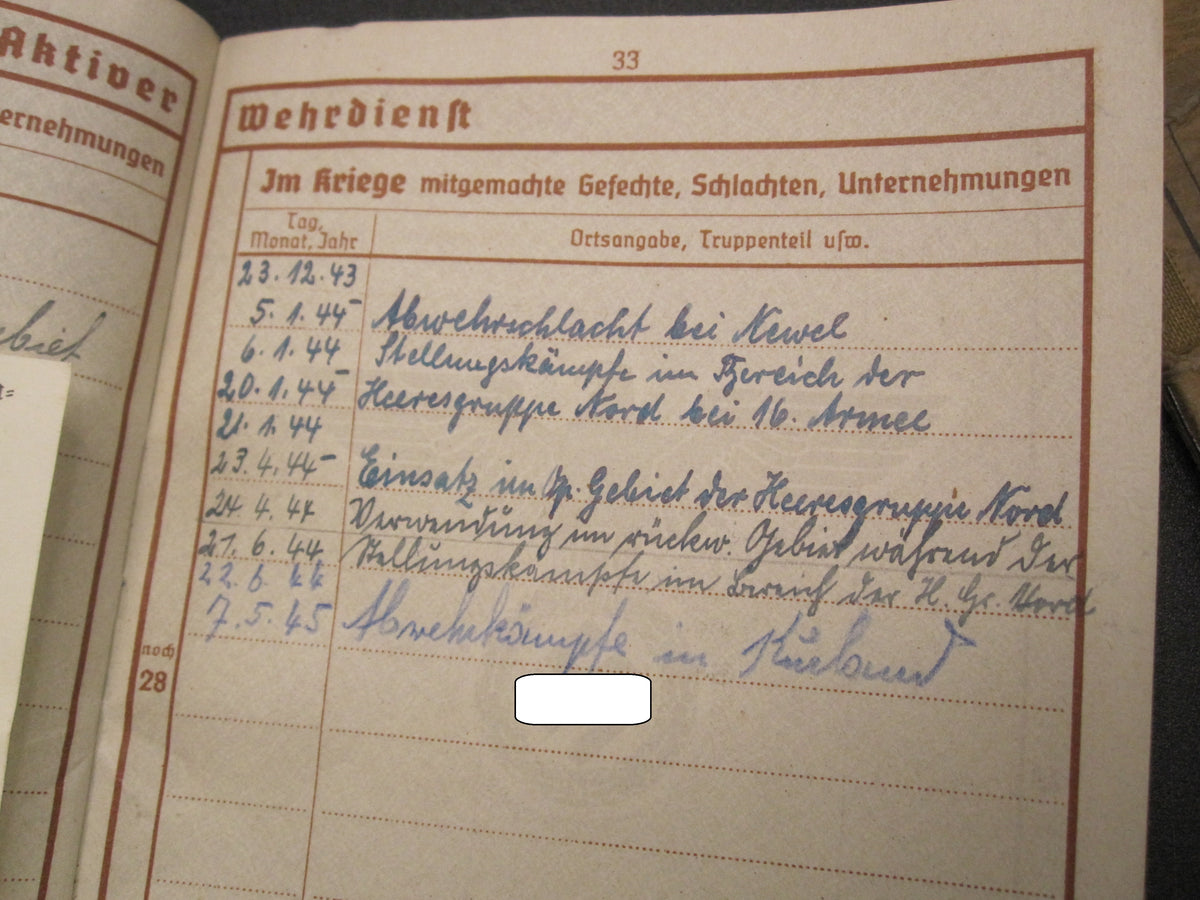 Aktiver
ernehmungen
ebiet
33
Wehrdienst
Im Kriege mitgemachte Gefechte, Schlachten, Unternehmungen
Tag,
Monat, Jahr
Ortsangabe, Truppenteil usw.
23.12.43
5. 1. 44 - Abwehrschlacht bei Newel
6. 1. 44 Stellungskämpfe im Bereich der
20. 1. 44 - Heeresgruppe Nord bei 16. Armee
21. 1. 44
23. 4. 44 - Einsatz im Op. Gebiet der Heeresgruppe Nord
24. 4. 44 Verwendung im rückw. Gebiet während der
21. 6. 44 Stellungskämpfe im Bereich der H. Gr. Nord
22. 6. 44
7. 5. 45 Abwehrkämpfe in Kurland
noch
28